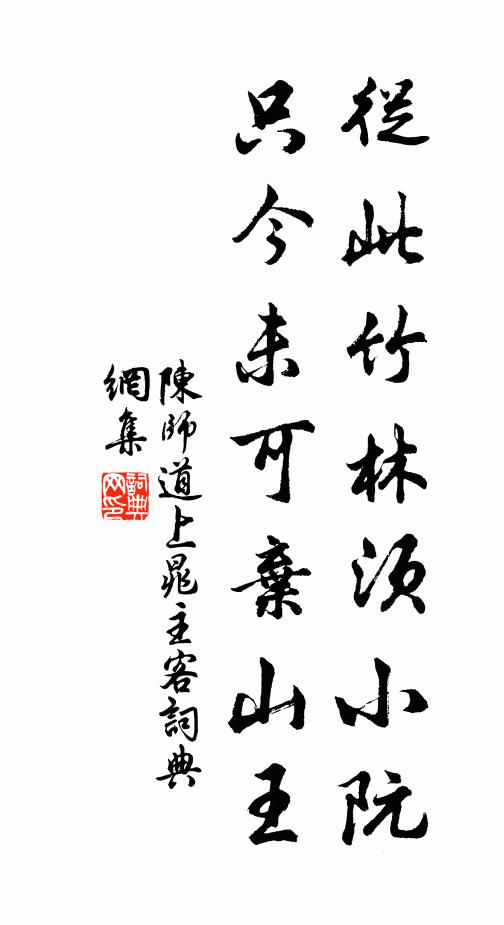 從此竹林須小阮
只今未可棄山王
陳師道上晁主客詞典
網集
詞典
网印